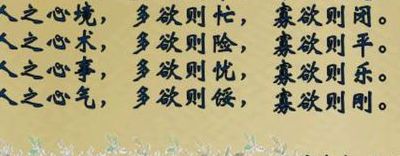 人之心境，多欲则忙，寡欲则闭。
人之心术，多欲则险，寡欲则平。
人之心事，多欲则忧，寡欲则乐。
人之心气，多欲则馁，寡欲则刚。